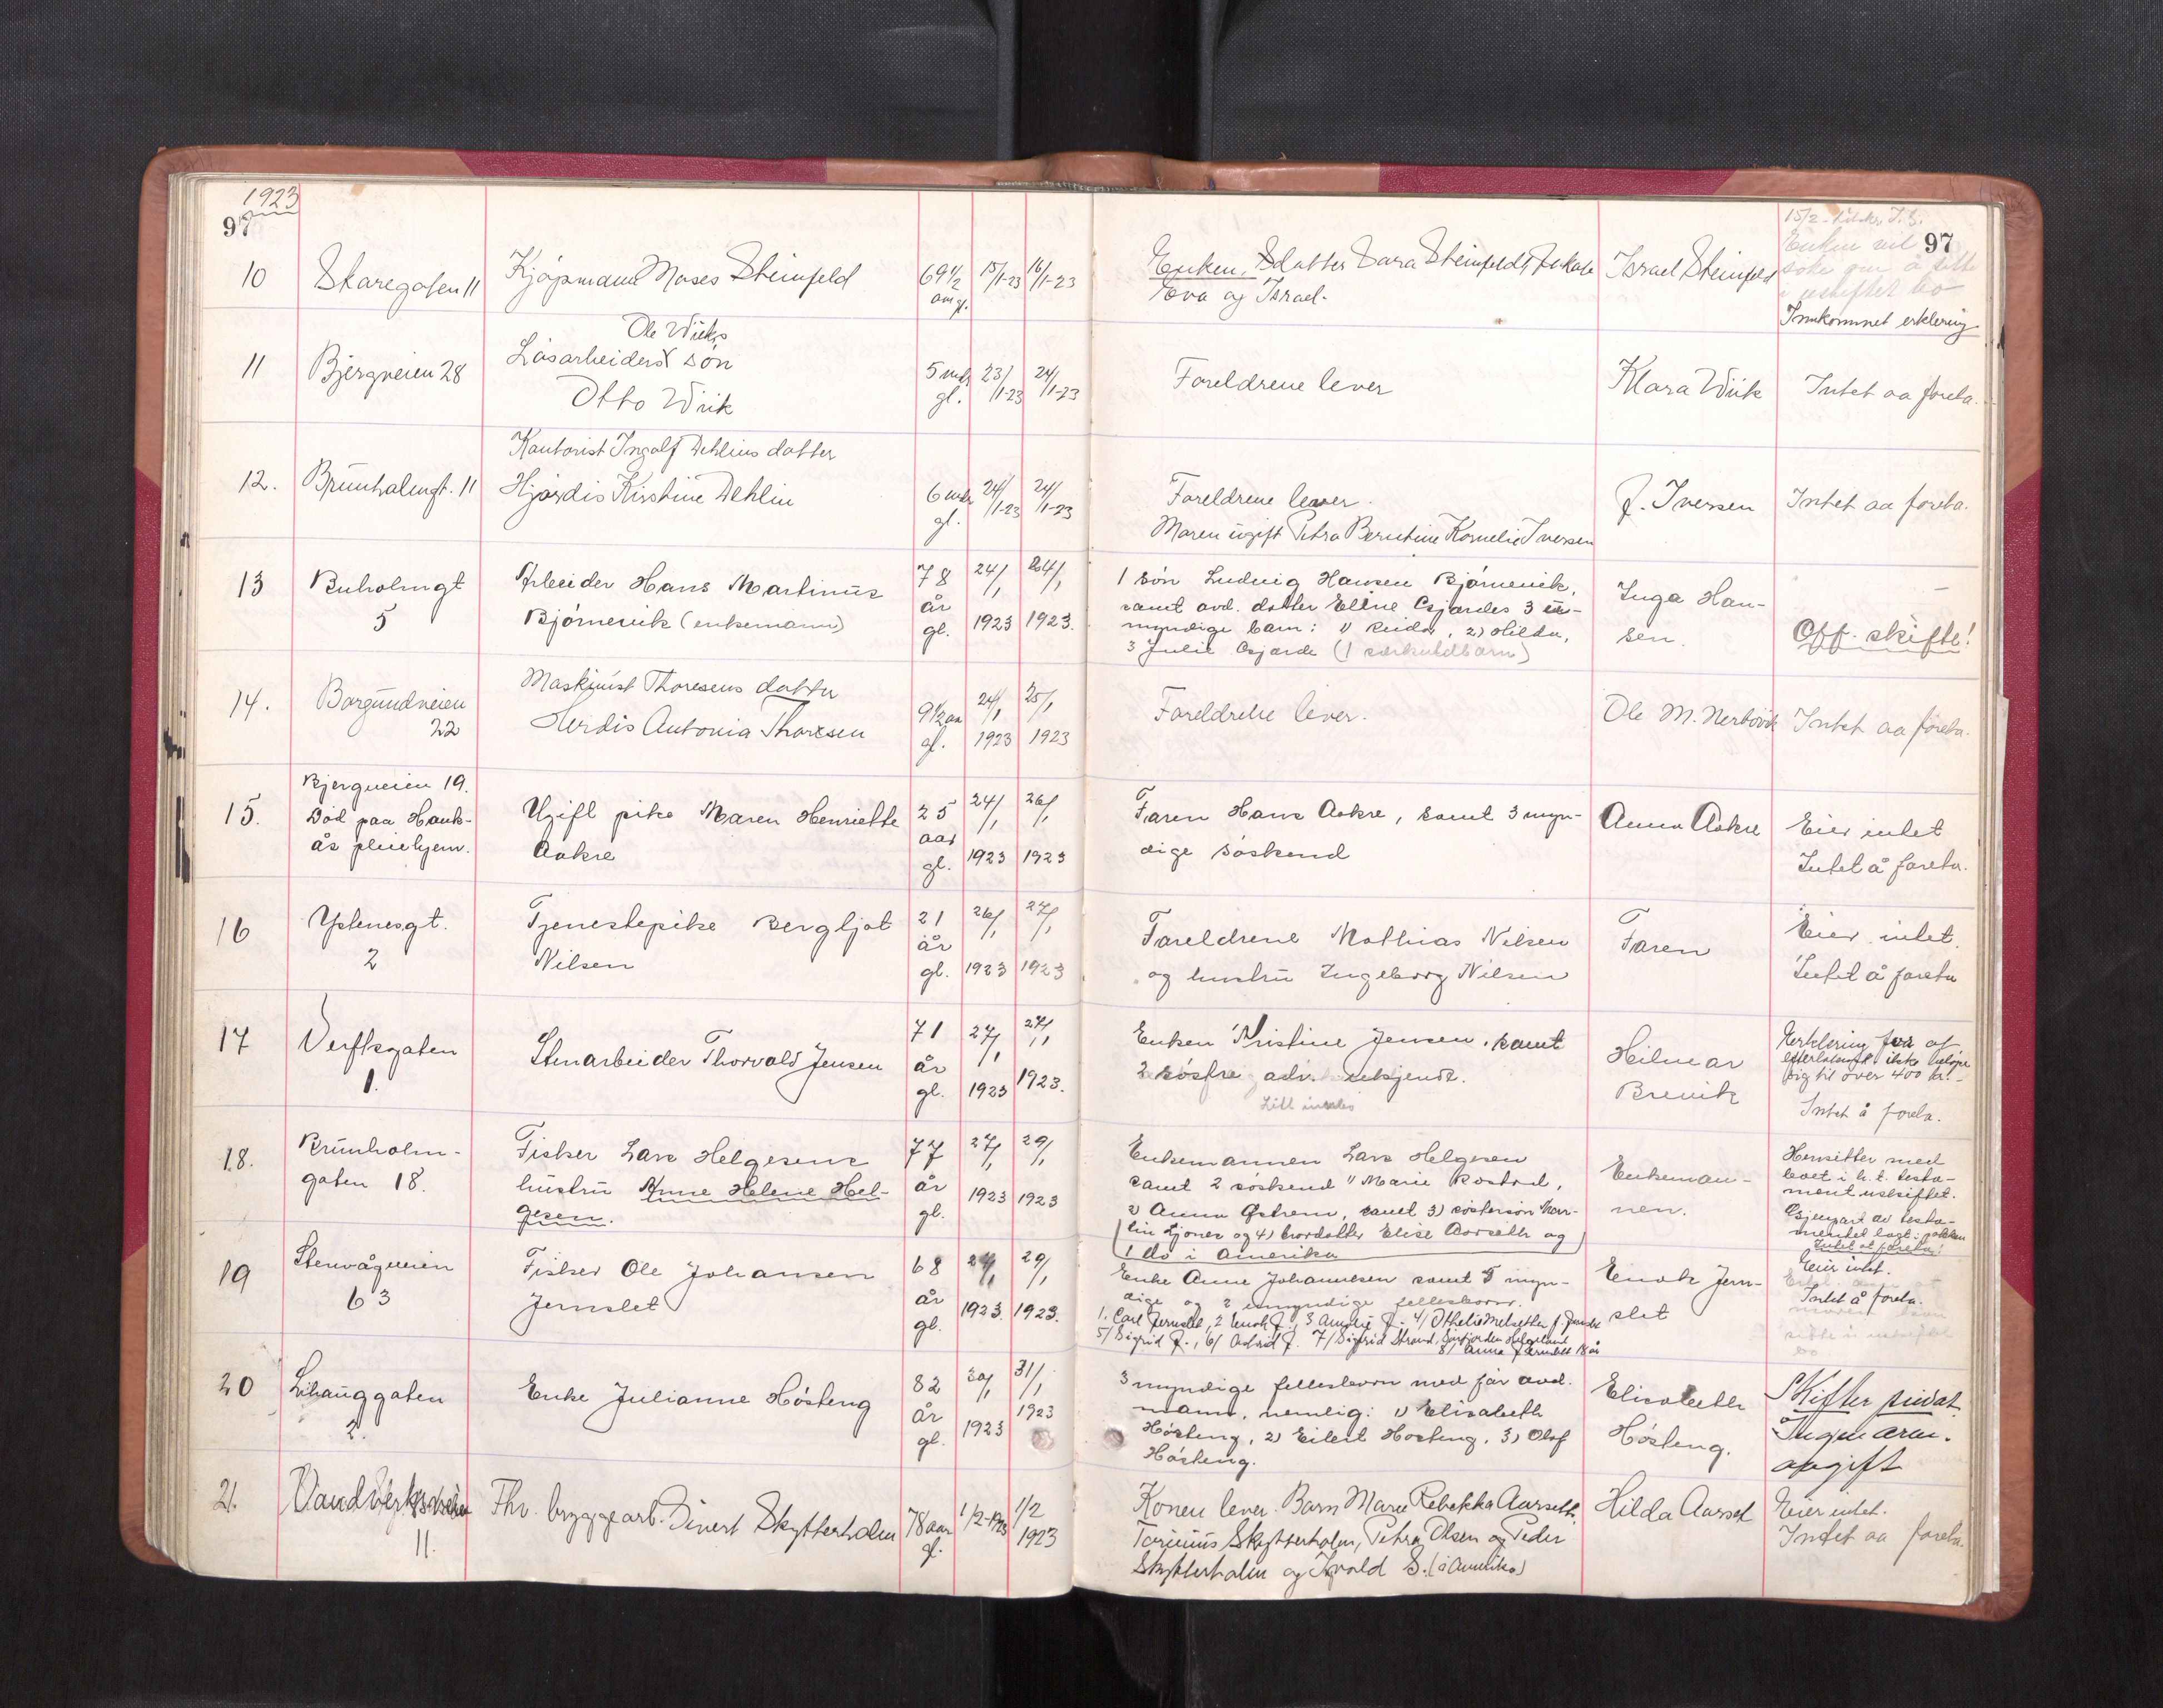 1923
97
97
15/2
Enken vil
søke om å sitte
i uskiftet bo
Innkommet erklering
10 Skaregaten 11 Kjøpmann Moses Steinfeld 69 1/2 aar gl. 15/1-23 16/1-23 Enken, datter Sara Steinfeldt, Israel Steinfeld
Eva og Israel.
Ole Wiiks
11 Bjergveien 28 Løsarbeiders søn 5 mdr gl. 23/1-23 24/1-23 Foreldrene lever Klara Wiik Intet aa foreta.
Otto Wiik
Kontorist Ingolf Dehlins datter
12. Brunholmgt. 11 Hjørdis Kirstine Dehlin 6 mdr gl. 24/1-23 24/1-23 Foreldrene lever. J. Iversen Intet aa foreta.
Moren ugift Petra Berntine Kornelie Iversen
13 Buholmgt Arbeider Hans Martinus 78 24/1 24/1 1 søn Ludvig Hansen Bjørnevik, Inga Han-
5 Bjørnevik (enkemann) år gl. 1923 1923. samt avd. datter Eline Gjærdes 3 u- sen. Off. skifte!
myndige barn: 1) Reidar, 2) Hilda,
3 Julie Gjærde (1 særkuldbarn)
14. Borgundveien Maskinist Thoresens datter 9 1/2 aar 24/1 25/1 Foreldrene lever. Ole M. Nerbøvik Intet aa foreta.
22 Herdis Antonia Thoresen gl. 1923 1923
Bjergveien 19.
15. Død paa Hauk- Ugift pike Maren Henriette 25 24/1 26/1 Faren Hans Aakre, samt 3 myn- Anna Aakre Eier intet
ås pleiehjem. Aakre aar gl. 1923 1923 dige søskend Intet å foreta.
16 Ystenesgt. Tjenestepike Bergljot 21 26/1 27/1 Foreldrene Mathias Nilsen Faren Eier intet.
2 Nilsen år gl. 1923 1923 og hustru Ingeborg Nilsen Intet å foreta
17 Verftsgaten Stenarbeider Thorvald Jensen 71 27/1 27/1 Enken Kristine Jensen, samt Hilmar Erklering for at
1. år gl. 1923 1923. 2 søstre adr. ukjendt. Brevik efterlatensk. ikke beløper
sig til over 400 kr.
Intet å foreta.
18. Brunholm- Fisker Lars Helgesens 77 27/1 29/1 Enkemannen Lars Helgesen Enkeman- Hensitter med
gaten 18. hustru Anne Helene Hel- år 1923 1923 samt 2 søskend 1) Marie Rostad, nen. boet i h. t. testa-
gesen. gl. 2) Anna Østrem, samt 3) søstersøn Mar- ment uskiftet.
tin Gjoner og 4) brordatter Elise Aarseth og Gjenpart av testa-
1 do i Amerika mentet lagt i pakken
Intet at foreta!
19 Stenvågveien Fisker Ole Johansen 68 29/1 Enke Anne Johannesen samt 5 myn- Enok Jern- Eier intet.
63 Jernslet år gl. 1923. 1923. dige og 2 umyndige fellesbarn. slet Intet å foreta.
1. Carl Jernslet, 2 Enok J., 3 Amalie J. 4/ Othelie Melsether f. Jernslet
5/ Sigrid J., 6/ Astrid J. 7/ Sigfrid Strand, Helgeland
8/ Anna Jernslett 18 år
20 Lihauggaten Enke Julianne Høsteng 82 30/1 31/1 3 myndige fellesbarn med før avd. Elisabeth Skifter privat.
2. år gl. 1923 1923 mann, nemlig: 1) Elisabeth Høsteng. Ingen arve-
Høsteng, 2) Eilert Hosteng, 3) Olaf avgift
Høsteng.
21. Vandverksveien Fhv. bryggearb. Sivert Skytterholm 78 aar gl. 1/2-1923 1/2 1923 Konen lever. Barn Marie Rebekka Aarseth, Hilda Aarset Eier intet.
11. Torinius Skytterholm, Petra Olsen og Peder Intet aa foreta.
Skytterholm og Ivald S. (i Amerika)